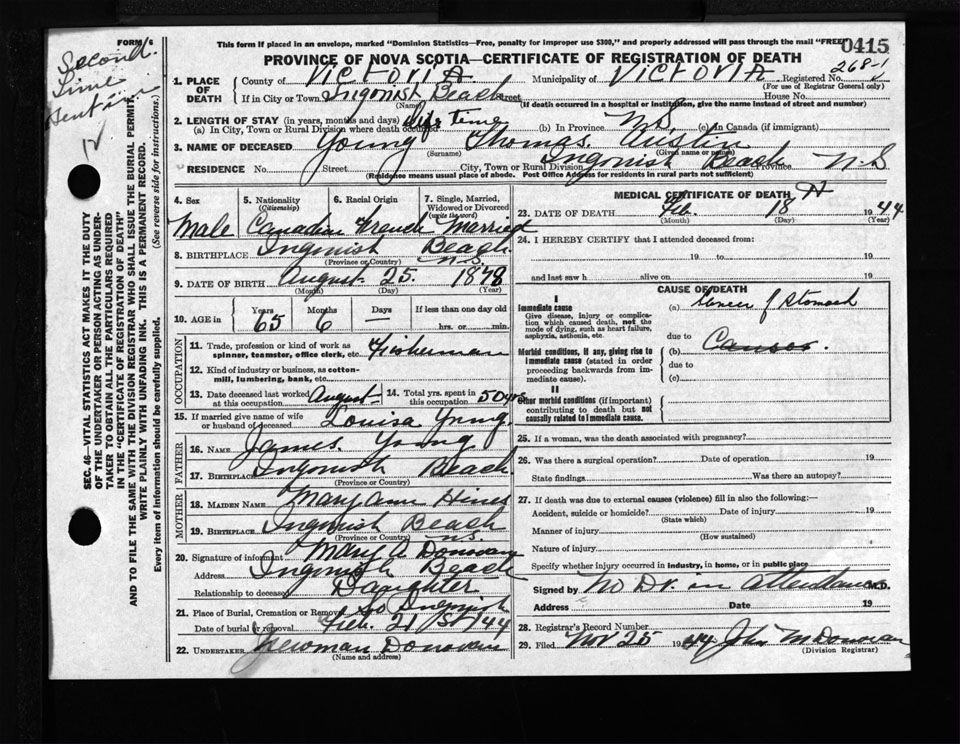 FORM 6
Second
Time
Sent in
This form if placed in an envelope, marked "Dominion Statistics—Free, penalty for improper use $300," and properly addressed will pass through the mail "FREE"
0415
PROVINCE OF NOVA SCOTIA—CERTIFICATE OF REGISTRATION OF DEATH
268-1
1. PLACE OF DEATH County of VictoriA Municipality of VictoriA Registered No.
(For use of Registrar General only)
If in City or Town Ingonish Beach Street House No.
(Name) (If death occurred in a hospital or institution, give the name instead of street and number)
2. LENGTH OF STAY (in years, months and days)
(a) In City, Town or Rural Division where death occurred Life Time (b) In Province N.S. (c) In Canada (if immigrant)
3. NAME OF DECEASED Young Thomas. Austin
(Surname) (Given name or names)
RESIDENCE No. Street City, Town or Rural Division Ingonish Beach Province N-S
(Residence means usual place of abode. Post Office Address for residents in rural parts not sufficient)
4. Sex 5. Nationality (Citizenship) 6. Racial Origin 7. Single, Married, Widowed or Divorced (write the word)
Male Canadian French Married
8. BIRTHPLACE Ingonish Beach N-S
(Province or Country)
9. DATE OF BIRTH August 25. 1878
(Month) (Day) (Year)
10. AGE Years Months Days If less than one day old
65 6 – hrs. or min.
OCCUPATION
11. Trade, profession or kind of work as spinner, teamster, office clerk, etc. Fisherman
12. Kind of industry or business, as cotton-mill, lumbering, bank, etc.
13. Date deceased last worked at this occupation August 14. Total yrs. spent in this occupation 50 yrs
15. If married give name of wife or husband of deceased Louisa Young.
FATHER
16. NAME James. Young.
17. BIRTHPLACE Ingonish Beach
(Province or Country)
MOTHER
18. MAIDEN NAME Mary Ann Hines
19. BIRTHPLACE Ingonish Beach
(Province or Country) N.S.
20. Signature of informant Mary A Donovan
Address Ingonish Beach
Relationship to deceased Daughter
21. Place of Burial, Cremation or Removal So Ingonish
Date of burial or removal Feb. 21st 1944
22. UNDERTAKER Newman Donovan
(Name and address)
MEDICAL CERTIFICATE OF DEATH
23. DATE OF DEATH Feb. 18 1944
(Month) (Day) (Year)
24. I HEREBY CERTIFY that I attended deceased from:
19 to 19
and last saw h alive on 19
CAUSE OF DEATH
I
Immediate cause
Give disease, injury or complication which caused death, not the mode of dying, such as heart failure, asphyxia, asthenia, etc.
(a) Cancer of Stomach
due to
Morbid conditions, if any, giving rise to immediate cause (stated in order proceeding backwards from immediate cause).
(b)
due to
(c)
II
Other morbid conditions (if important) contributing to death but not causally related to immediate cause.
25. If a woman, was the death associated with pregnancy?
26. Was there a surgical operation? Date of operation 19
State findings Was there an autopsy?
27. If death was due to external causes (violence) fill in also the following:—
Accident, suicide or homicide? Date of injury 19
(State which)
Manner of injury
(How sustained)
Nature of injury
Specify whether injury occurred in industry, in home, or in public place
Signed by No Dr. in attendance M.D.
Address Date 19
28. Registrar's Record Number
29. Filed Nov 25 1944 John M Donovan
(Division Registrar)
SEC. 46—VITAL STATISTICS ACT MAKES IT THE DUTY
OF THE UNDERTAKER OR PERSON ACTING AS UNDER-
TAKER TO OBTAIN ALL THE PARTICULARS REQUIRED
IN THE "CERTIFICATE OF REGISTRATION OF DEATH"
AND TO FILE THE SAME WITH THE DIVISION REGISTRAR WHO SHALL ISSUE THE BURIAL PERMIT.
WRITE PLAINLY WITH UNFADING INK. THIS IS A PERMANENT RECORD.
Every item of information should be carefully supplied. (See reverse side for instructions.)